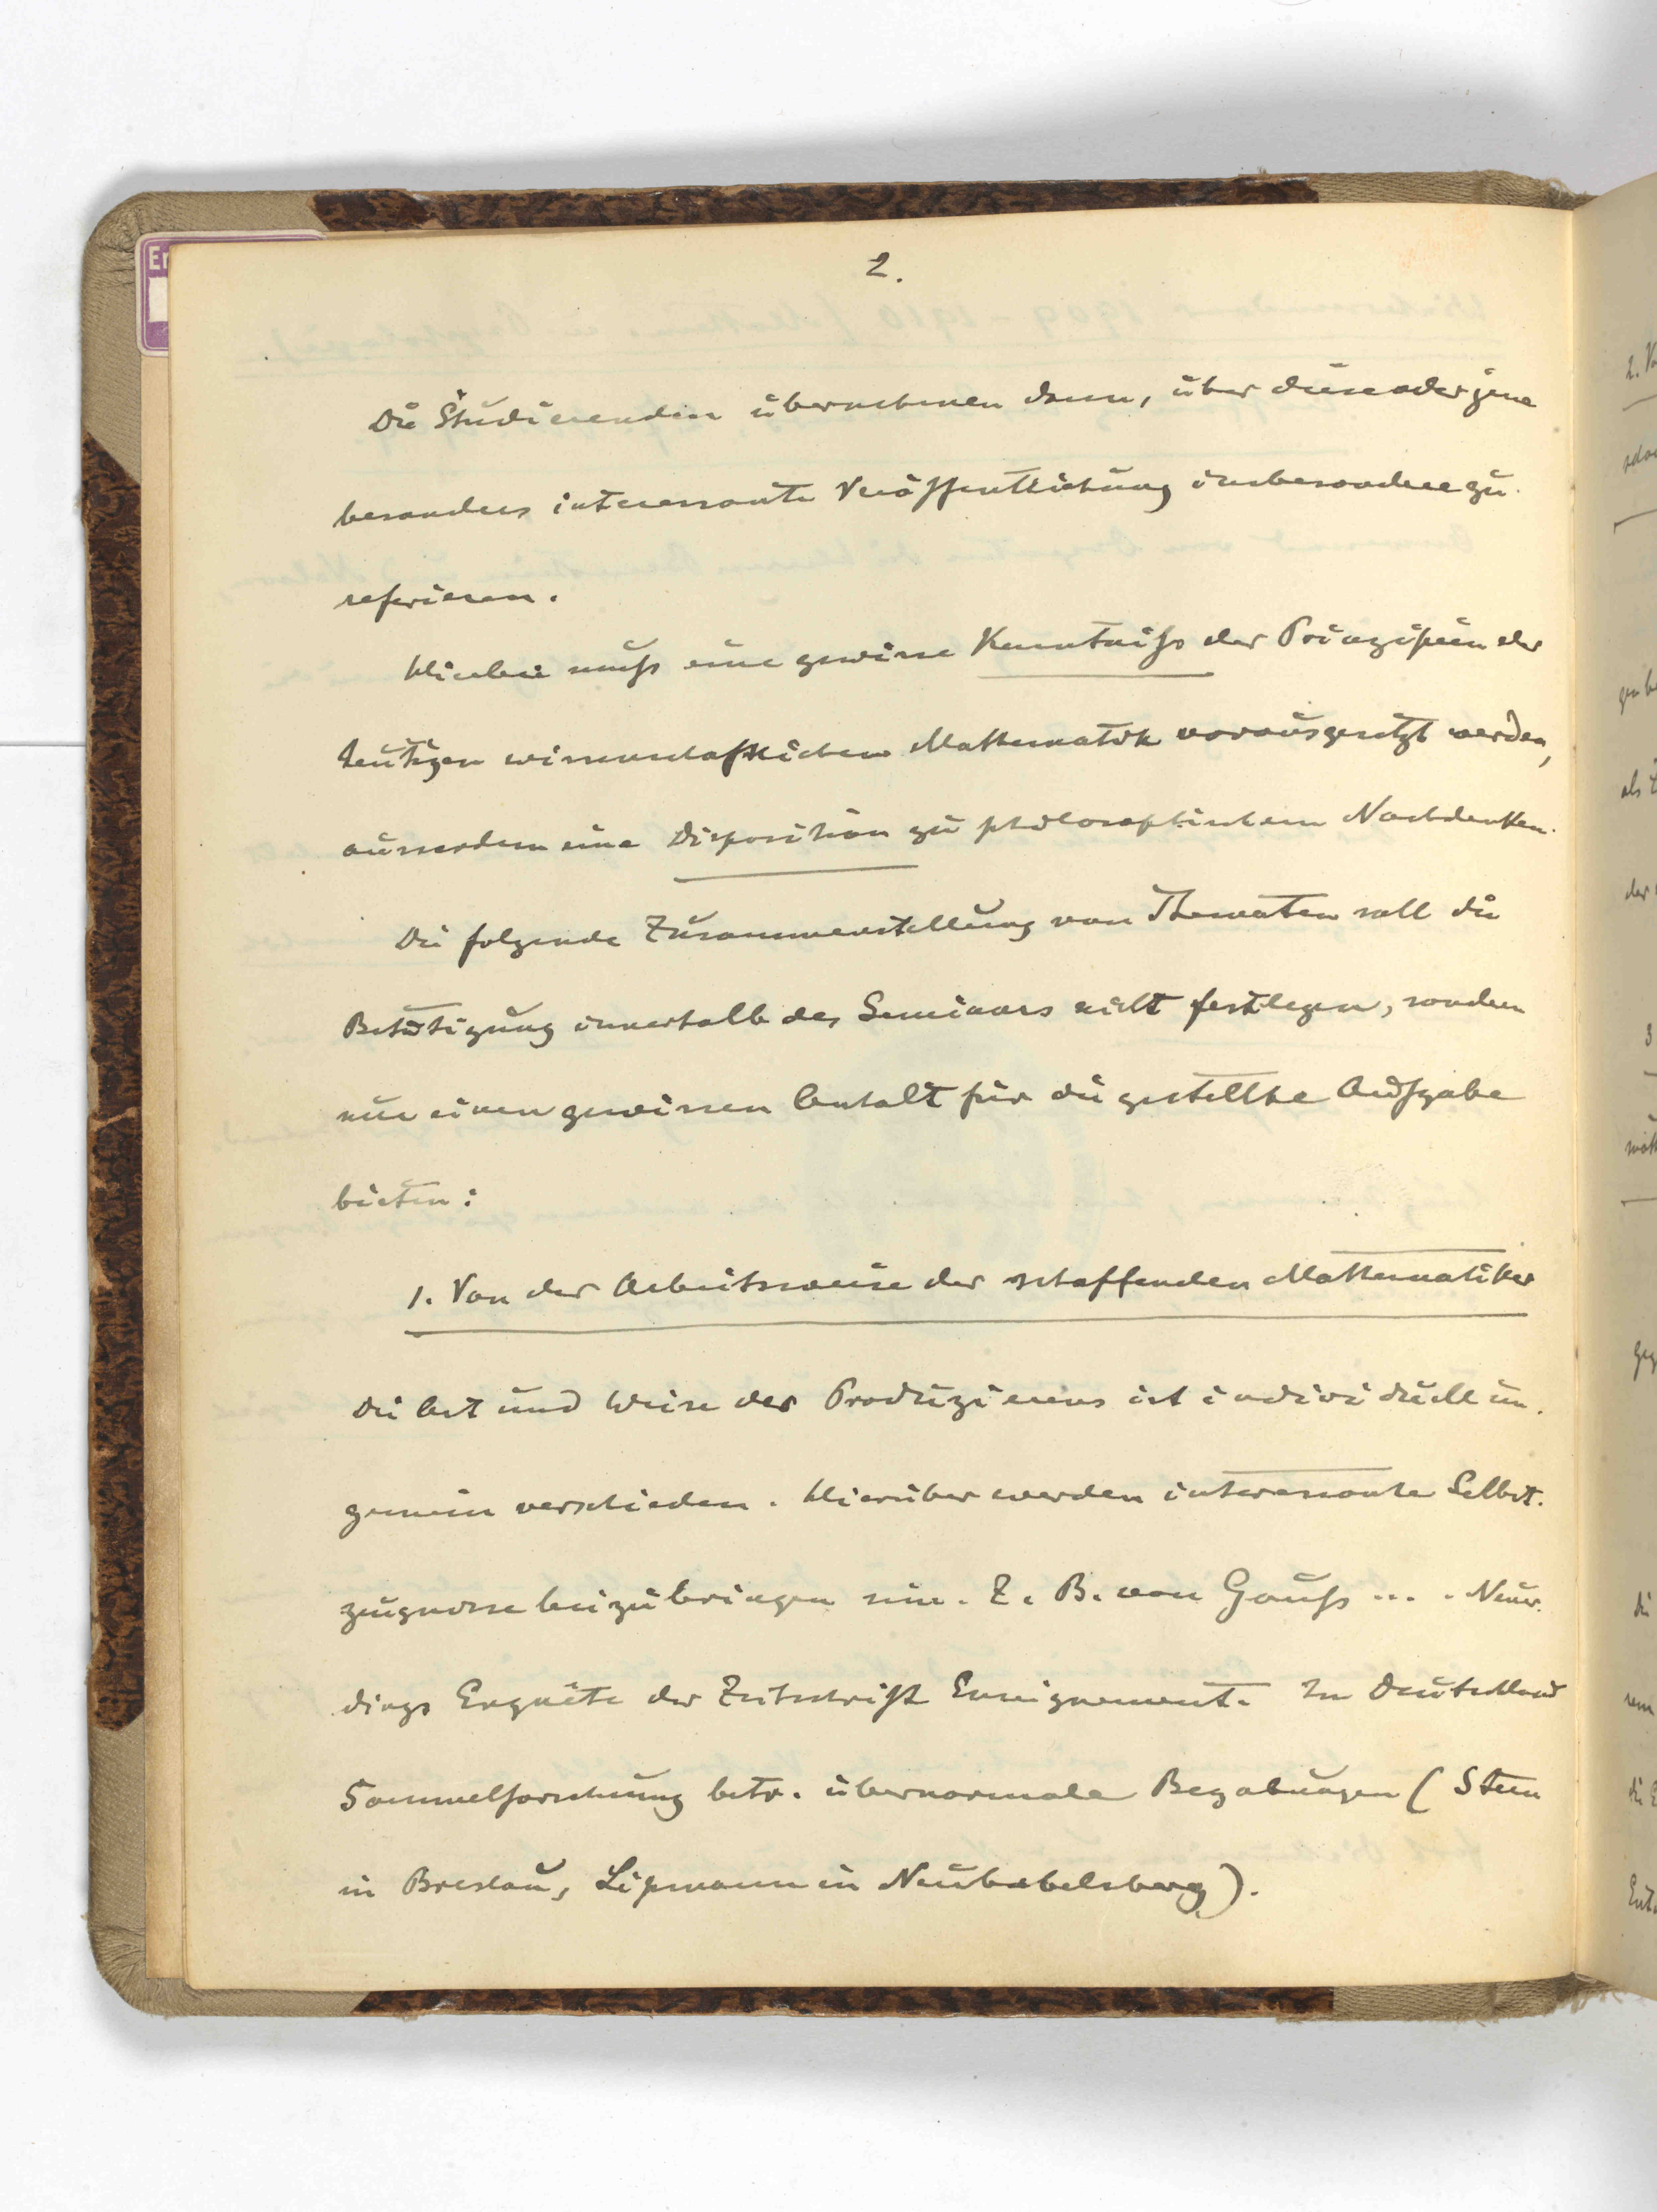 2.
Die Studierenden übernehmen dann, über diese oder jene
besonders interessante Veröffentlichung insbesondere zu
referieren.
Hierbei muß eine gewisse Kenntniß der Prinzipien der
heutigen wissenschaftlichen Mathematik vorausgesetzt werden,
ausserdem eine Disposition zu philosophischem Nachdenken.
Die folgende Zusammenstellung von Thematen soll die
Betätigung innerhalb des Seminars nicht festlegen, sondern
nur einen gewissen Anhalt für die gestellte Aufgabe
bieten:
1. Von der Arbeitsweise der schaffenden Mathematiker
Die Art und Weise des Produzierens ist individuell un-
gemein verschieden. Hierüber werden interessante Selbst-
zeugnisse beizubringen sein. Z. B. von Gauß ... . Neuer-
dings Enquête der Zeitschrift Enseignement. In Deutschland
Sammelforschung betr. übernormale Begabungen (Stern
in Breslau, Lipmann in Neubabelsberg).
En